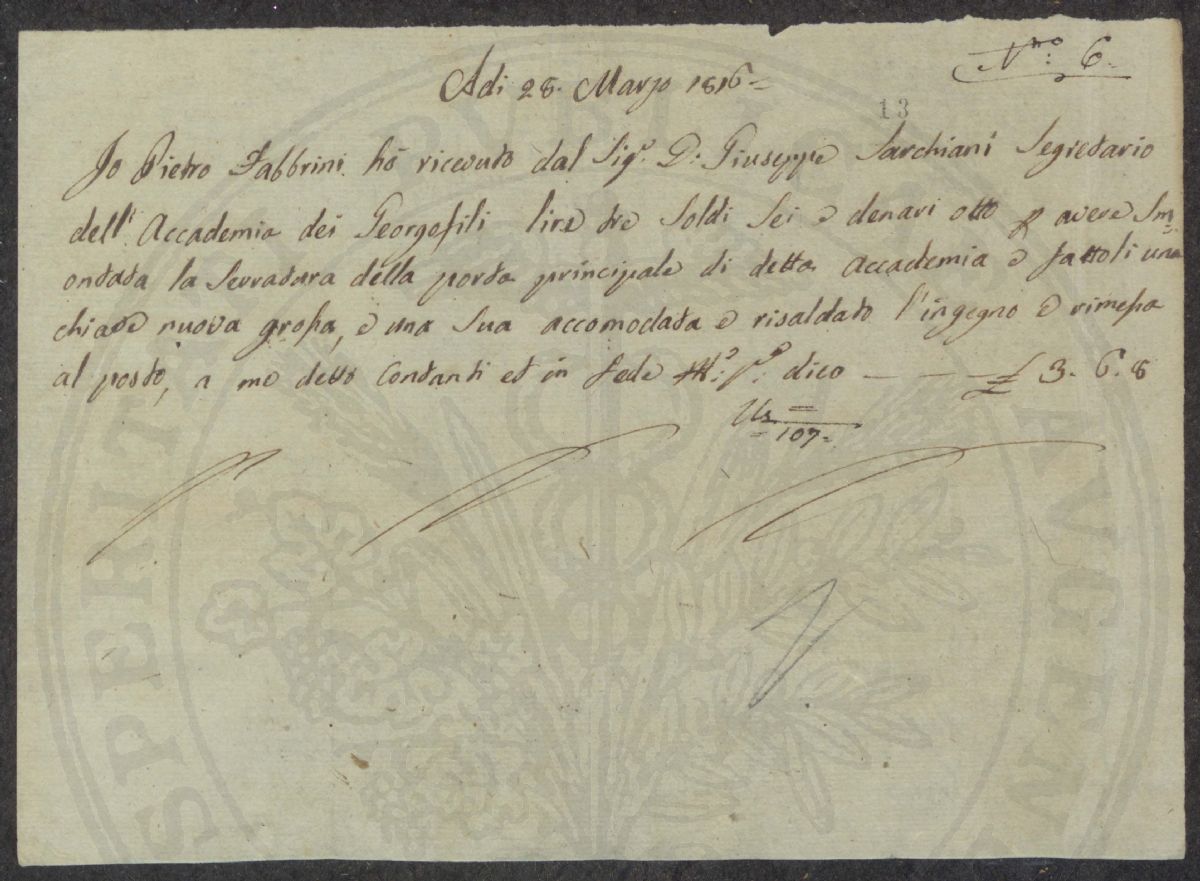 N.ro 6.
Adi 28. Marzo 1816=
13
Io Pietro Fabbrini ho ricevuto dal Sig.e D: Giuseppe Sarchiani Segretario
dell' Accademia dei Georgofili lire tre Soldi Sei e denari otto p avere Sm=
ontata la Serratura della porta principale di detta Accademia e fattoli una
chiave nuova grossa, e una Sua accomodata e risaldato l'ingegno e rimessa
al posto, a me detto Contanti ed in fede dico — — — £ 3. 6. 8
107=
PVBLICAE
PROSPERITATI
AVGEN